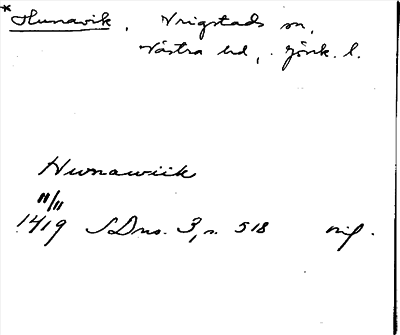 *Hunavik, Vrigstads sn,
Västra hd, Jönk. l.
Hwnawiik
11/11
1419 SDns. 3, s. 518 orig.